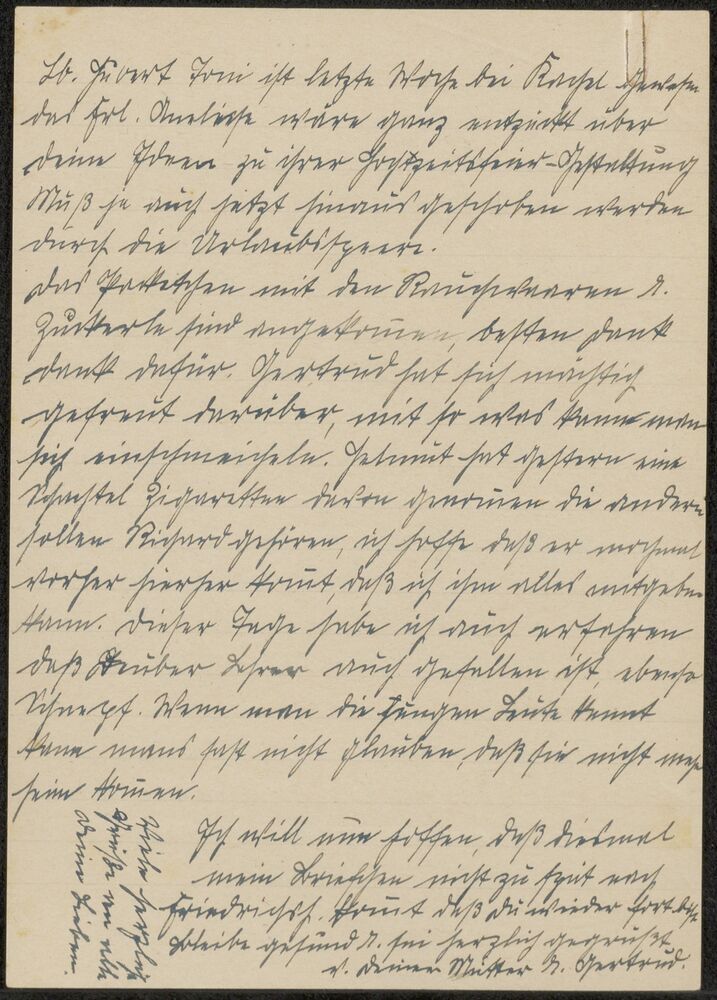 Lb. Hubert Toni ist letzte Woche bei Rachel gewesen
das Frl. Aneliese wäre ganz entzückt über
deine Ideen zu ihrer Hochzeitsfeier-Gestaltung
Muß ja auch jetzt hinaus geschoben werden
durch die Urlaubssperre.
Das Paketchen mit den Rauchwaaren u.
Zuckerle sind angekommen, besten Dank
dank dafür. Gertrud hat sich mächtig
gefreut darüber, mit so was kann man
sich einschmeicheln. Helmut hat gestern eine
Schachtel Zigaretten davon genommen die andern
sollen Richard gehören, ich hoffe daß er nochmal
vorher hierher komt, daß ich ihm alles mitgeben
kann. Dieser Tage habe ich auch erfahren
daß Stuber Lehrer auch gefallen ist, ebenso
Schnepf. Wenn man die jungen Leute kennt
kann mans fast nicht glauben, daß sie nicht mehr
heim kommen.
Ich will nun hoffen, daß diesmal
mein Briefchen nicht zu spät nach
Friedrichsh. komt daß du wieder fort bist
Bleibe gesund u. sei herzlich gegrüßt
v. deiner Mutter u. Gertrud.
Viele herzlich
Grüße an alle
deine Lieben.